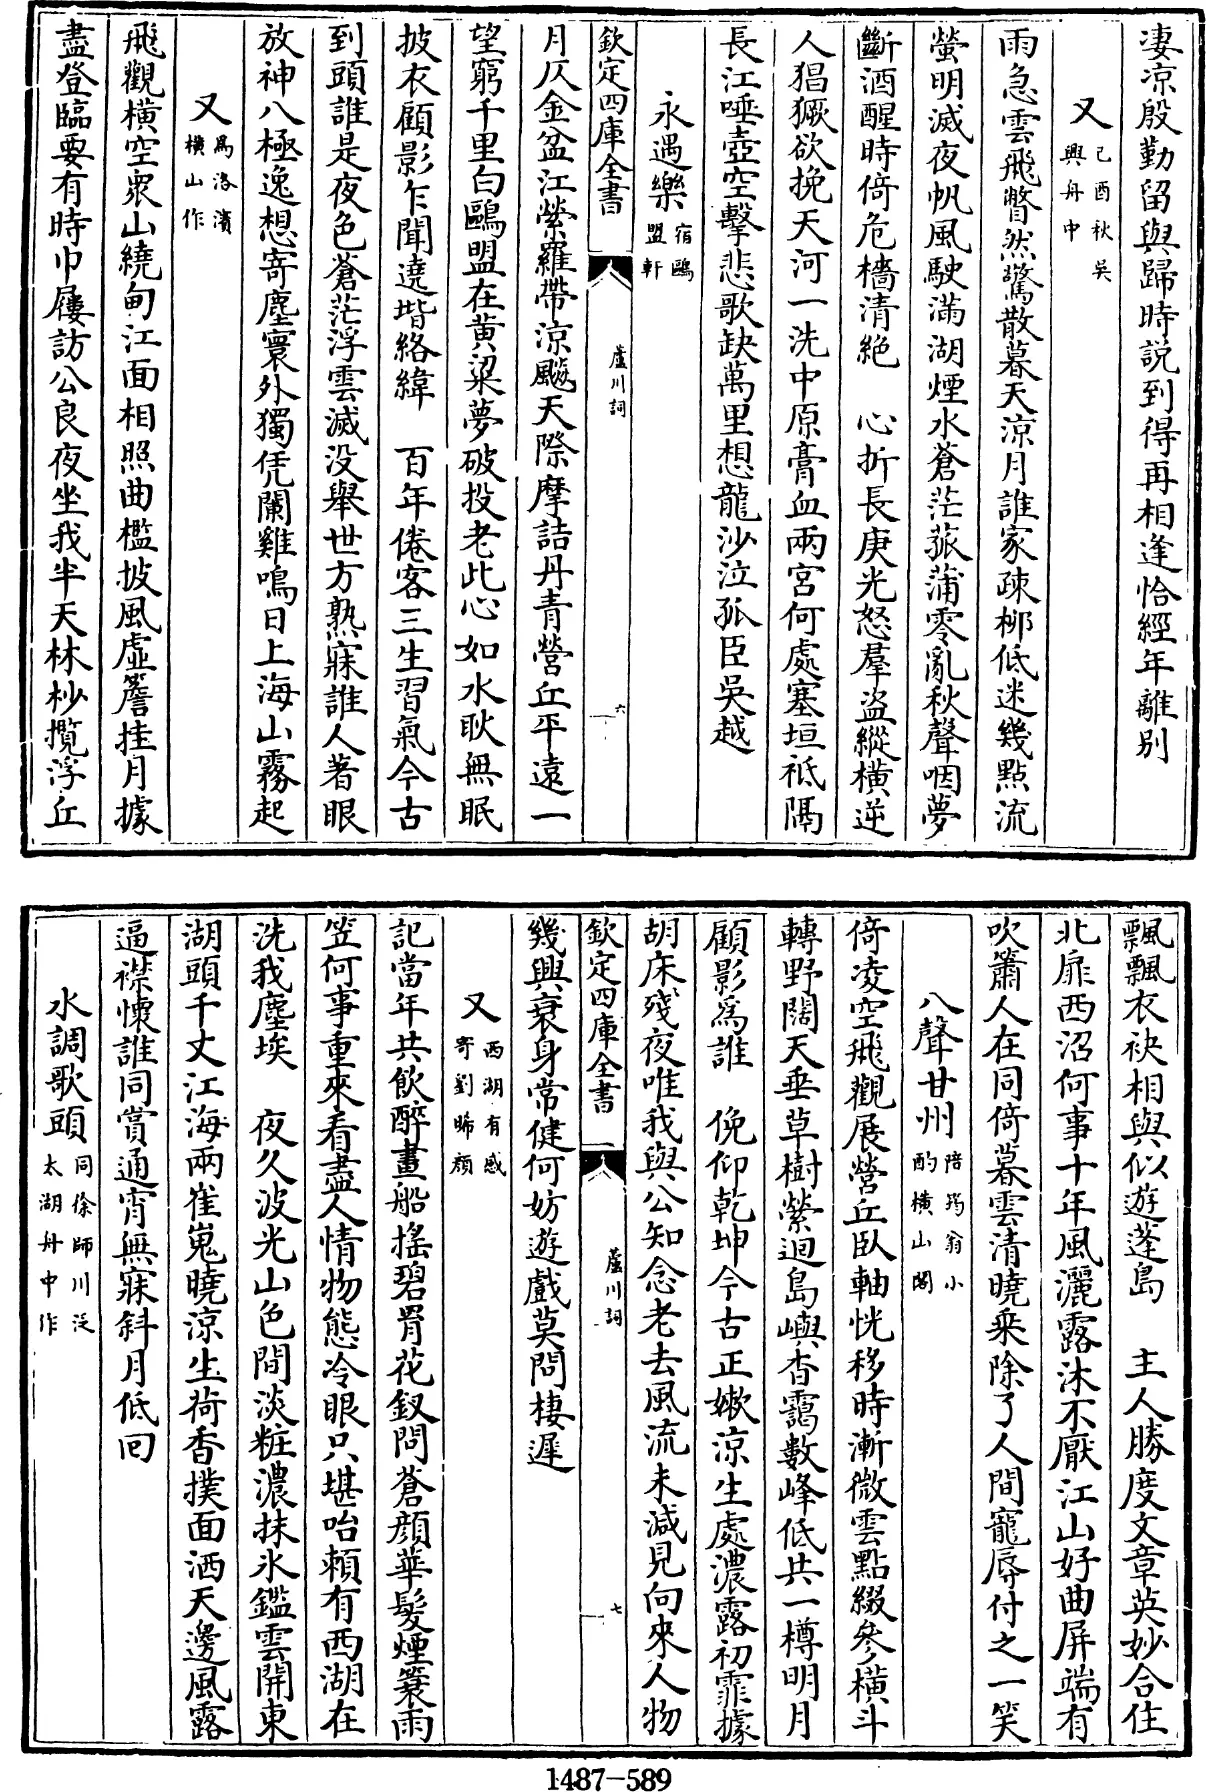 淒涼殷勤留與歸時說到得再相逢恰經年離別
又己酉秋吳興舟中
雨急雲飛瞥然驚散暮天涼月誰家疎栁低迷幾點流
螢明滅夜帆風駛滿湖煙水蒼茫菰蒲零亂秋聲咽夢
斷酒醒時倚危檣清絶　心折長庚光怒羣盗縱橫逆
人猖獗欲挽天河一洗中原膏血兩宮何處塞垣祗隔
長江唾壺空擊悲歌缺萬里想龍沙泣孤臣吳越
永遇樂宿鷗盟軒
欽定四庫全書　蘆川詞　六
月仄金盆江縈羅帶凉飈天際摩詰丹青營丘平逺一
望窮千里白鷗盟在黄粱夢破投老此心如水耿無眠
披衣顧影乍聞遶堦絡緯　百年倦客三生習氣今古
到頭誰是夜色蒼茫浮雲滅没舉世方熟寐誰人著眼
放神八極逸想寄塵寰外獨凭闌雞鳴日上海山霧起
又爲洛濱横山作
飛觀横空衆山繞甸江面相照曲檻披風虚簷挂月據
盡登臨要有時巾屨訪公良夜坐我半天林杪攬浮丘
飄飄衣袂相與似遊蓬島　主人勝度文章英妙合住
北扉西沼何事十年風灑露沐不厭江山好曲屏端有
吹簫人在同倚暮雲清曉乗除了人間寵辱付之一笑
八聲甘州陪筠翁小酌横山閣
倚凌空飛觀展營丘臥軸恍移時漸微雲點綴參横斗
轉野闊天垂草樹縈迴島嶼杳靄數峰低共一樽明月
顧影爲誰　俛仰乾坤今古正嫩凉生處濃露初霏據
胡床殘夜唯我與公知念老去風流未減見向來人物
欽定四庫全書　蘆川詞　七
幾興衰身常健何妨遊戲莫問棲遲
又西湖有感寄劉晞顔
記當年共飲醉畫船摇碧罥花釵問蒼顔華髮煙蓑雨
笠何事重來看盡人情物態冷眼只堪咍賴有西湖在
洗我塵埃　夜久波光山色間淡粧濃抹氷鑑雲開東
湖頭千丈江海兩崔嵬曉凉生荷香撲面洒天邊風露
逼襟懷誰同賞通宵無寐斜月低囘
水調歌頭同徐師川泛太湖舟中作
1487-589